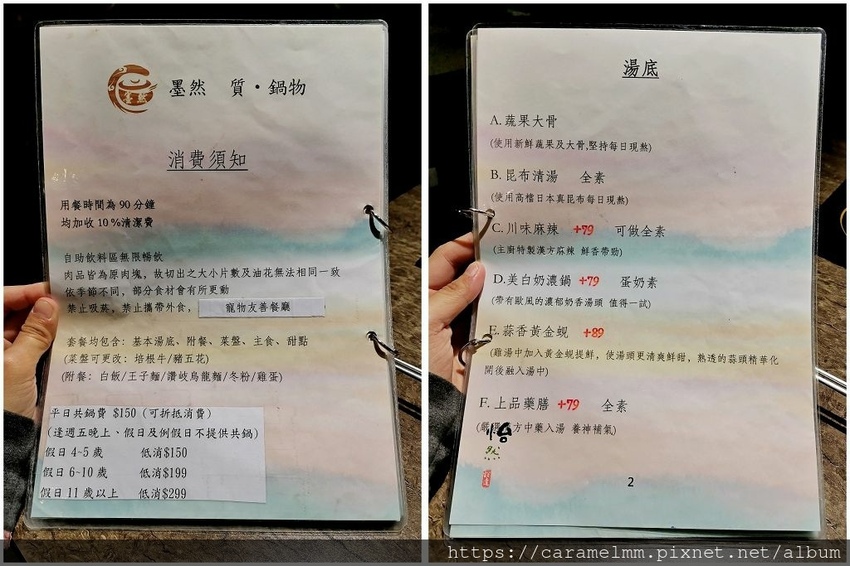 墨然 質·鍋物
消費須知
用餐時間為90分鐘
均加收10%清潔費
自助飲料區無限暢飲
肉品皆為原肉塊，故切出之大小片數及油花無法相同一致
依季節不同，部分食材會有所更動
禁止吸菸，禁止攜帶外食， 寵物友善餐廳
套餐均包含：基本湯底、附餐、菜盤、主食、甜點
(菜盤可更改：培根牛/豬五花)
(附餐：白飯/王子麵/讚岐烏龍麵/冬粉/雞蛋)
平日共鍋費 $150 (可折抵消費)
(逢週五晚上、假日及例假日不提供共鍋)
假日 4~5 歲 低消$150
假日 6~10 歲 低消$199
假日 11 歲以上 低消$299
湯底
A.蔬果大骨
(使用新鮮蔬果及大骨,堅持每日現熬)
B.昆布清湯 全素
(使用高檔日本真昆布每日現熬)
C.川味麻辣 +79 可做全素
(主廚特製漢方麻辣 鮮香帶勁)
D.美白奶濃鍋 +79 蛋奶素
(帶有歐風的濃郁奶香湯頭 值得一試)
E.蒜香黃金蜆 +89
(雞湯中加入黃金蜆提鮮，使湯頭更清爽鮮甜，熟透的蒜頭精華化
開後融入湯中)
F.上品藥膳 +79 全素
(嚴選 方中藥入湯 養神補氣)
2
https://caramelmm.pixnet.net/album